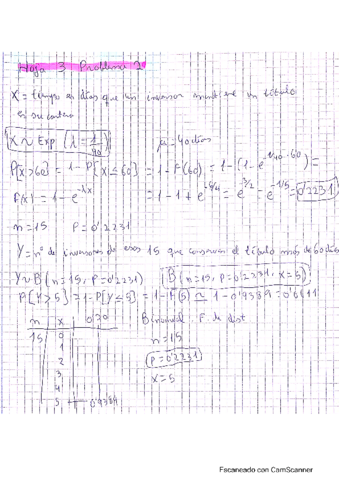 Hoja 3 Problema 2
X = tiempo en días que un inversor mantiene un título
en su cartera
X ~ Exp (λ = 1/40)   μ = 40 días
P[X>60] = 1 - P[X ≤ 60] = 1 - F(60) = 1 - (1 - e^(-1/40 · 60)) =
F(x) = 1 - e^(-λx)   = 1 - 1 + e^(-6/4) = e^(-3/2) = e^(-1'5) = 0'2231
n = 15   P = 0'2231
Y = nº de inversores de esos 15 que conservan el título más de 60 días
Y ~ B (n = 15, P = 0'2231)   B (n = 15, P = 0'2231, x = 5)
P[Y > 5] = 1 - P[Y ≤ 5] = 1 - F(5) ≃ 1 - 0'9389 = 0'0611
n   x   0'20   Binomial F. de dist
15   0   n = 15
1
2   P = 0'2231
3
4   x = 5
5   0'9389
Escaneado con CamScanner